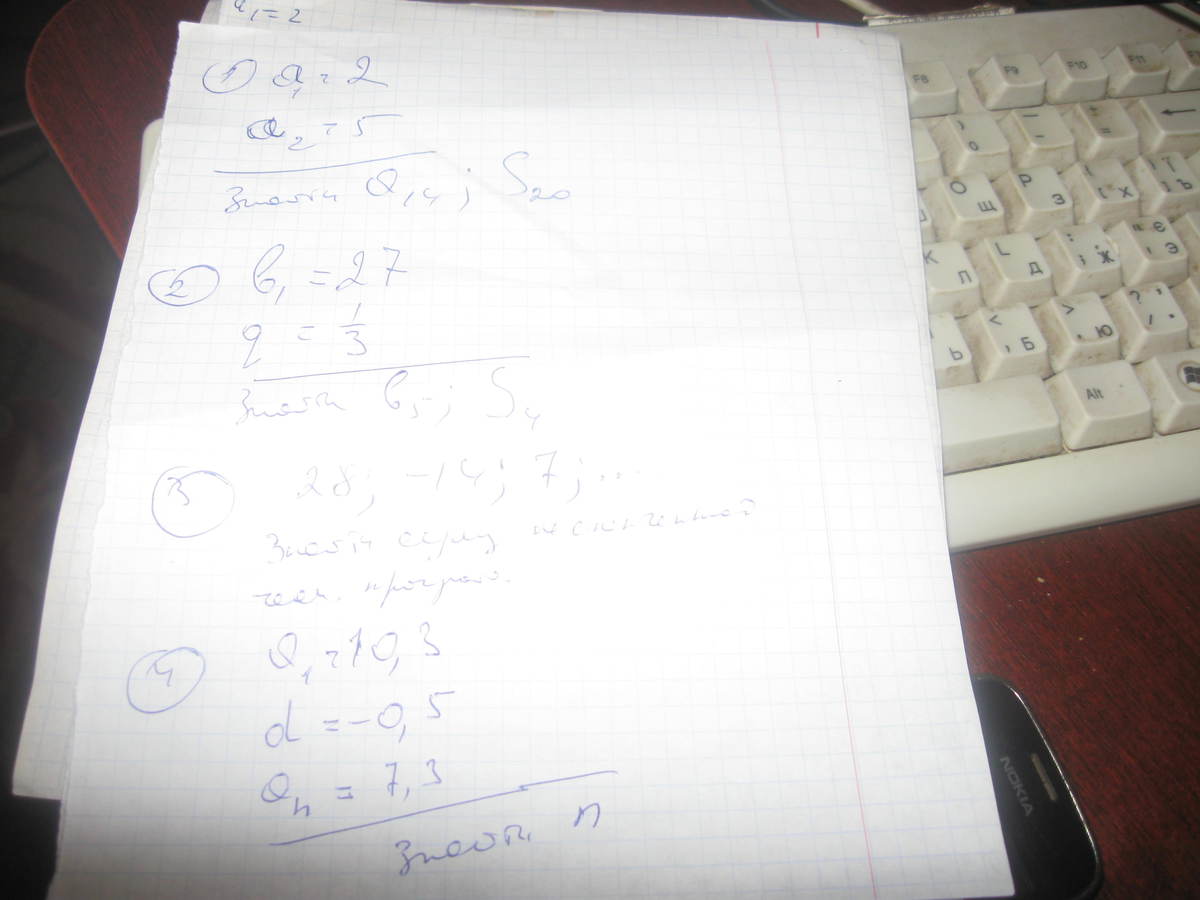 a₁ = 2
① a₁ = 2
a₂ = 5
Знайти a₁₄; S₂₀
② b₁ = 27
q = 1/3
Знайти b₅; S₄
③ 28; -14; 7; ...
Знайти суму нескінченної
геом. прогрес.
④ a₁ = 10,3
d = -0,5
aₙ = 7,3
Знайти n
F8 F9 F10 F11
) 0 _ - + = ←
O Щ P З { [ Х } ] Ї Ъ
K Л L Д : ; Ж " ' Є Э
Ь < , Б > . Ю ? / , .
Alt
NOKIA